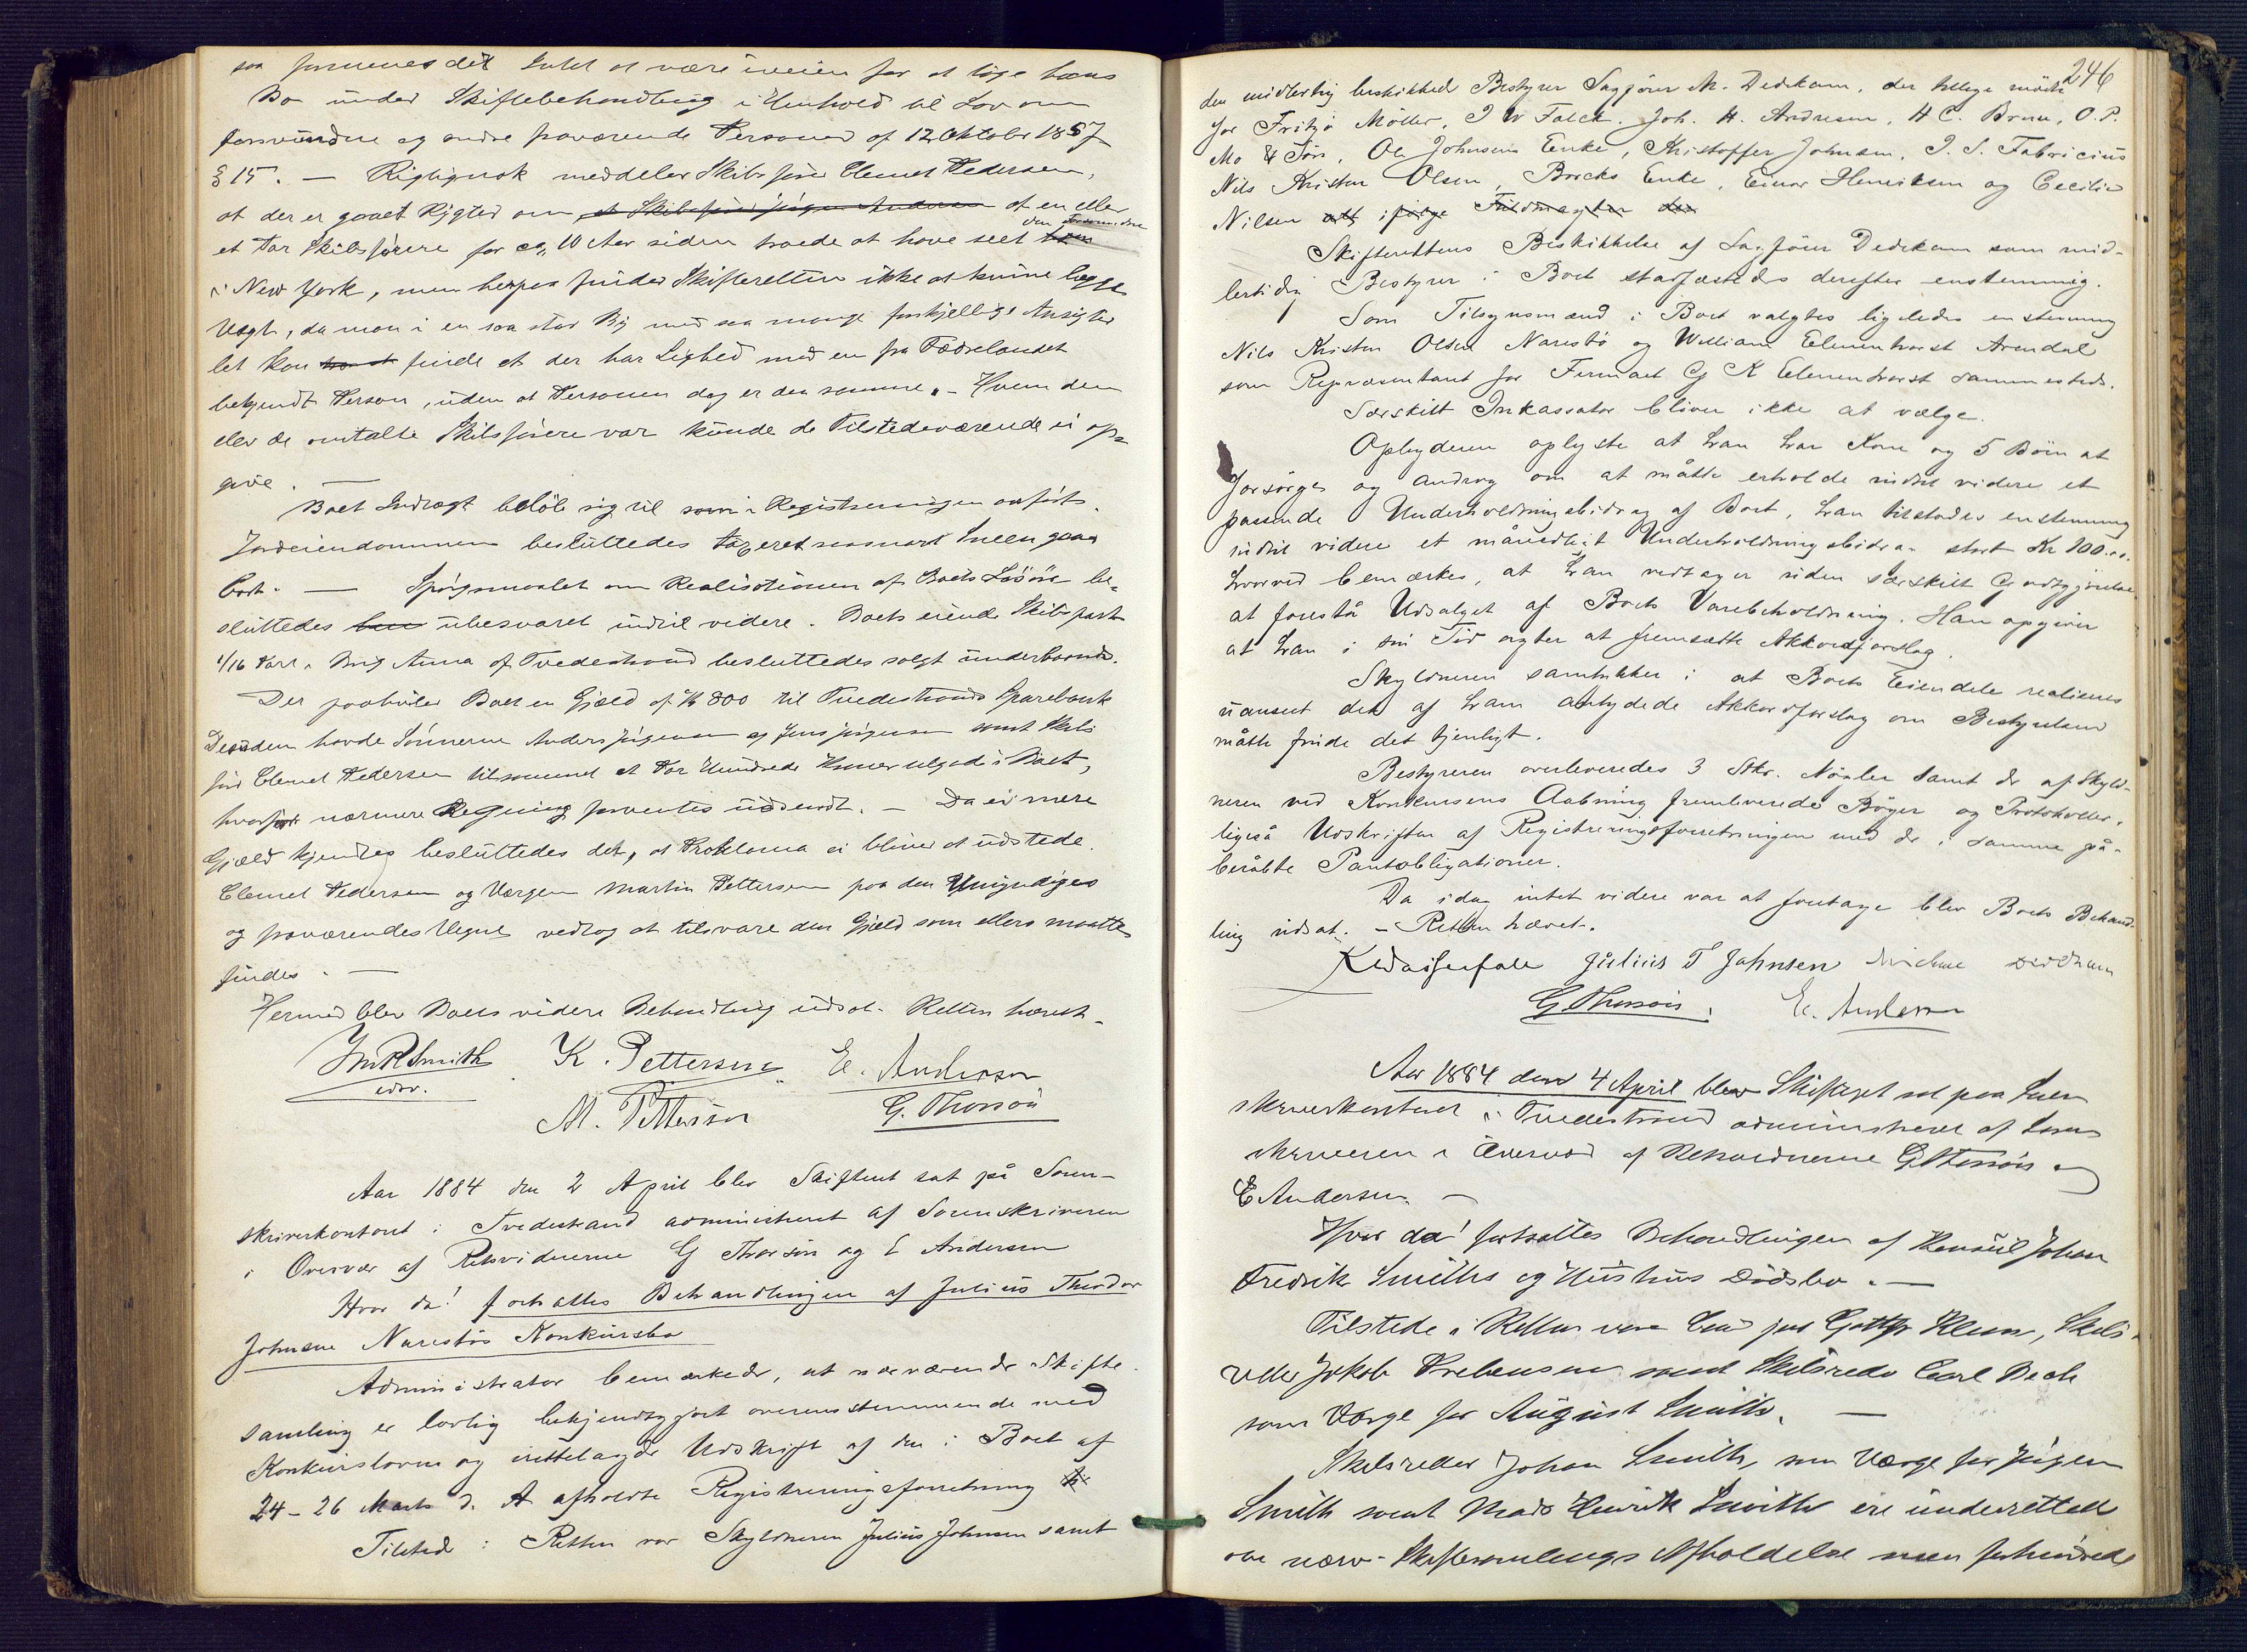 saa formenes det Intet at være iveien for at tage hans
Bo under Skiftebehandling i Henhold til Lov om
forsvundne og andre fraværende Personer af 12 Oktober 1857
§ 15. — Rigtignok meddeler Skibsfører Clemet Pedersen,
at der er gaaet Rygter om at Skibsfører Jørgen Andersen at en eller
den Forsvundne
et Par Skibsførere for ca. 10 Aar siden troede at have seet ham
i New York, men herpaa finder Skifteretten ikke at kunne lægge
Vægt, da man i en saa stor By med saa mange forskjellige Ansigter
let kan finde et der har Lighed med en fra Fædrelandet
bekjendt Person, uden at Personen dog er den samme. – Hvem den
eller de omtalte Skibsførere var kunde de Tilstedeværende ei op-
give. —
Boets Indtægt beløb sig til som i Registreringen anført.
Jordeiendommen besluttedes taxeret saasnart Sneen gaar
bort. — Spørgsmaalet om Realisationen af Boets Løsøre be-
sluttedes ubesvaret indtil videre. Boets eiende Skibspart
1/16 Part i Brig Anna af Tvedestrand besluttedes solgt underhaanden.
Der paahviler Boet en Gjæld af Kr 800 til Tvedestrands Sparebank
Desuden havde Sønnerne Anders Jørgensen og Jens Jørgensen samt Skibs
fører Clemet Pedersen tilsammen et Par Hundrede Kroner tilgode i Boet,
hvorfor nærmere Regning forventes indsendt. – Da ei mere
Gjæld kjendtes besluttedes det, at Proklama ei bliver at udstede.
Clemet Pedersen og Værgen Martin Pettersen paa den Umyndiges
og fraværendes Vegne vedtog at tilsvare den Gjæld som ellers maatte
findes. —
Hermed blev Boets videre Behandling udsat. Retten hævet.
JnRSmith K. Pettersen E. Andersen
edsv.
M. Pettersen G. Thorsøn
Aar 1884 den 2 April blev Skifteret sat på Soren-
skriverkontoret i Tvedestrand administreret af Sorenskriveren
i Overvær af Retsvidnerne G Thorsøn og E Andersen
Hvor da! fortsattes Behandlingen af Julius Theodor
Johnsens Narestøs Konkursbo
Administrator bemærkede, at nærværende Skifte-
samling er lovlig bekjendtgjort overensstemmende med
Konkursloven og irettelagde Udskrift af den i Boet af
24 – 26 Marts d. A afholdte Registreringsforretning
Tilstede i Retten var Skyldneren Julius Johnsen samt
246
den midlertidig beskikkede Bestyrer Sagfører M. Dedekam, der tillige mødte
for Fritjo Möller, J W Falck. Joh. H. Andresen, H C. Bruun, O. P.
Mo & Søn, Ole Johnsens Enke, Kristoffer Johnsen, J. S. Fabricius
Nils Kristen Olsen, Bocks Enke, Einar Henriksen og Cecilie
Nilsen alt ifølge Fuldmagter
Skifterettens Beskikkelse af Sagfører Dedekam som mid-
lertidig Bestyrer i Boet stadfæstedes derefter enstemmig.
Som Tilsynsmænd i Boet valgtes ligeledes enstemmig
Nils Kristen Olsen Narestø og William Ellenhorst Arendal
som Repræsentant for Firmaet G K Ellenhorst sammesteds.
Særskilt Inkassator bliver ikke at vælge.
Opbyderen oplyste at han har Kone og 5 Børn at
forsørge og androg om at måtte erholde indtil videre et
passende Underholdningsbidrag af Boet, han tilstodes enstemmig
indtil videre et månedligt Underholdningsbidrag stort Kr 100.00.
hvorved bemærkes, at han vedtager uden særskilt Godtgjørelse
at forestå Udsalget af Boets Varebeholdning. Han opgiver
at han i sin Tid agter at fremsætte Akkordforslag.
Skyldneren samtykker i at Boets Eiendele realiseres
uanseet det af ham antydede Akkordforslag om Bestyrelsen
måtte finde det tjenligt.
Bestyreren overleveredes 3 Stkr. Nøgler samt de af Skyld-
neren ved Konkursens Aabning fremleverede Bøger og Protokoller,
ligeså Udskriften af Registreringsforretningen med de i samme på-
beråbte Pantobligationer.
Da idag intet videre var at foretage blev Boets Behand-
ling udsat. – Retten hævet.
Julius T Johnsen Dedekam
G. Thorsøn, E. Andersen
Aar 1884 den 4 April blev Skifteret sat paa Soren
skriverkontoret i Tvedestrand administreret af Soren
skriveren i Overvær af Retsvidnerne G Thorsøn og
E Andersen. —
Hvor da! fortsattes Behandlingen af Konsul Johan
Fredrik Smiths og Hustrus Dødsbo. —
Tilstede i Retten vare Cand jur Klem, Skibs-
reder Jakob Prebensen samt Skibsreder Carl Bech
som Værge for August Smith. —
Skibsreder Johan Smith, som Værge for Jørgen
Smith samt Mads Henrik Smith ere underrettede
om nærv. Skiftesamlings Afholdelse men forhindrede